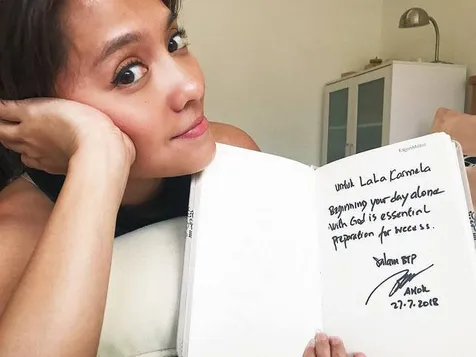 ExxonMobil
untuk LaLa Karmela
Beginning your day alone
with God is essential
preparation for success.
Salam BTP
AHOK
27.7.2018